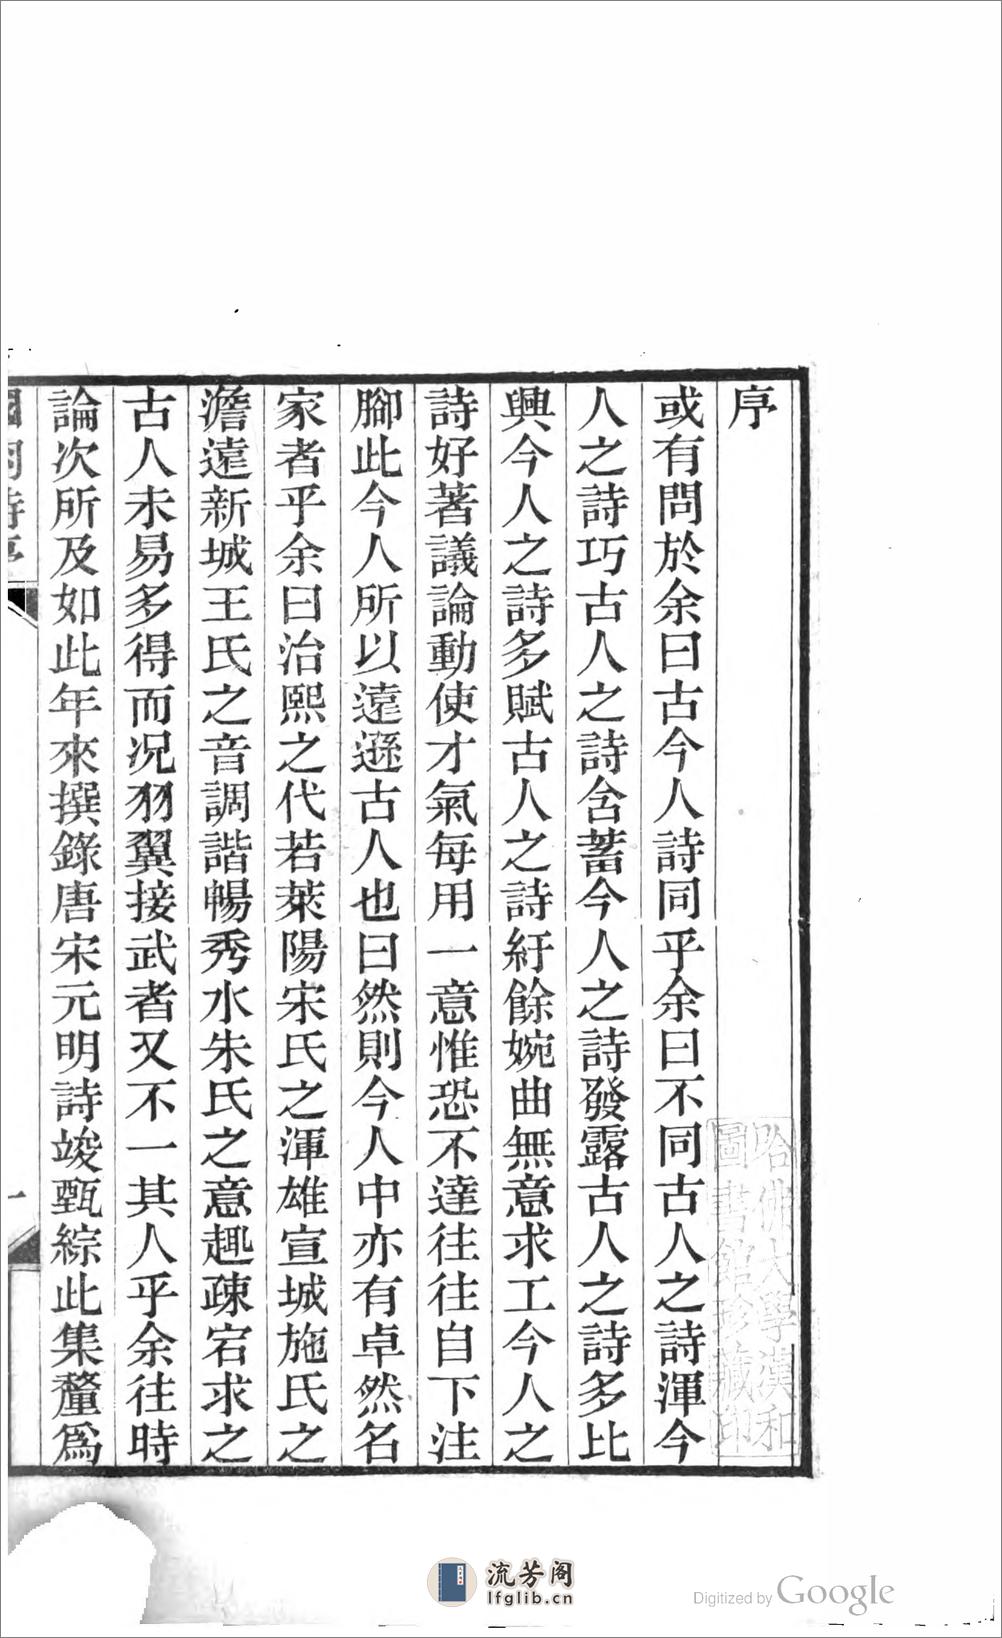 序
或有問於余曰古今人詩同乎余曰不同古人之詩渾今
人之詩巧古人之詩含蓄今人之詩發露古人之詩多比
興今人之詩多賦古人之詩紆餘婉曲無意求工今人之
詩好著議論動使才氣每用一意惟恐不達往往自下注
腳此今人所以遠遜古人也曰然則今人中亦有卓然名
家者乎余曰治熙之代若萊陽宋氏之渾雄宣城施氏之
澹遠新城王氏之音調諧暢秀水朱氏之意趣疎宕求之
古人未易多得而况羽翼接武者又不一其人乎余往時
論次所及如此年來撰錄唐宋元明詩竣甄綜此集釐爲
一
哈佛大學漢和
圖書館珍藏印
流芳阁
lfglib.cn
Digitized by Google